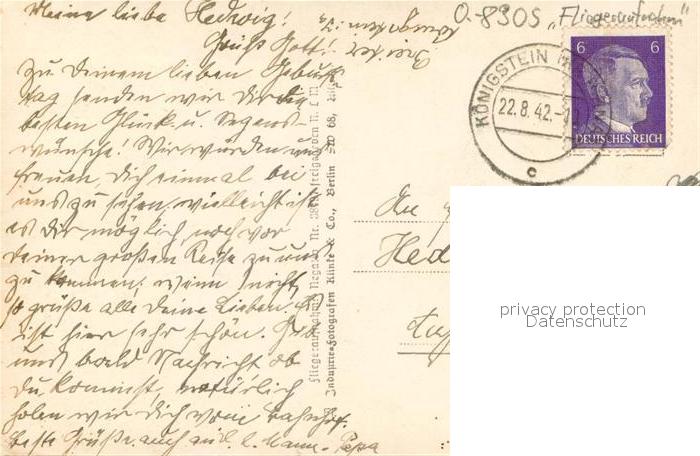 Meine liebe Hedwig!
Grüß Gott!
Zu Deinem lieben Geburts-
tag senden wir Dir die
besten Glück u. Segens-
wünsche! Wir würden uns
freuen, Dich einmal bei
uns zu sehen, vielleicht ist
es Dir möglich, noch vor
Deiner großen Reise zu uns
zu kommen; wenn nicht,
so grüße alle Deine Lieben. Es
ist hier sehr schön. Gib
uns bald Nachricht ob
Du kommst, natürlich
holen wir Dich vom Bahnhof.
Beste Grüße auch an d. l. Mama. Papa
O-8305 "Fliegeraufnahme"
KÖNIGSTEIN
22.8.42.
c
6 6
DEUTSCHES REICH
Fliegeraufnahme Negativ Nr. freigegeben
Industrie-Fotografen Klinke & Co., Berlin SW 68,
An
Hed
privacy protection
Datenschutz